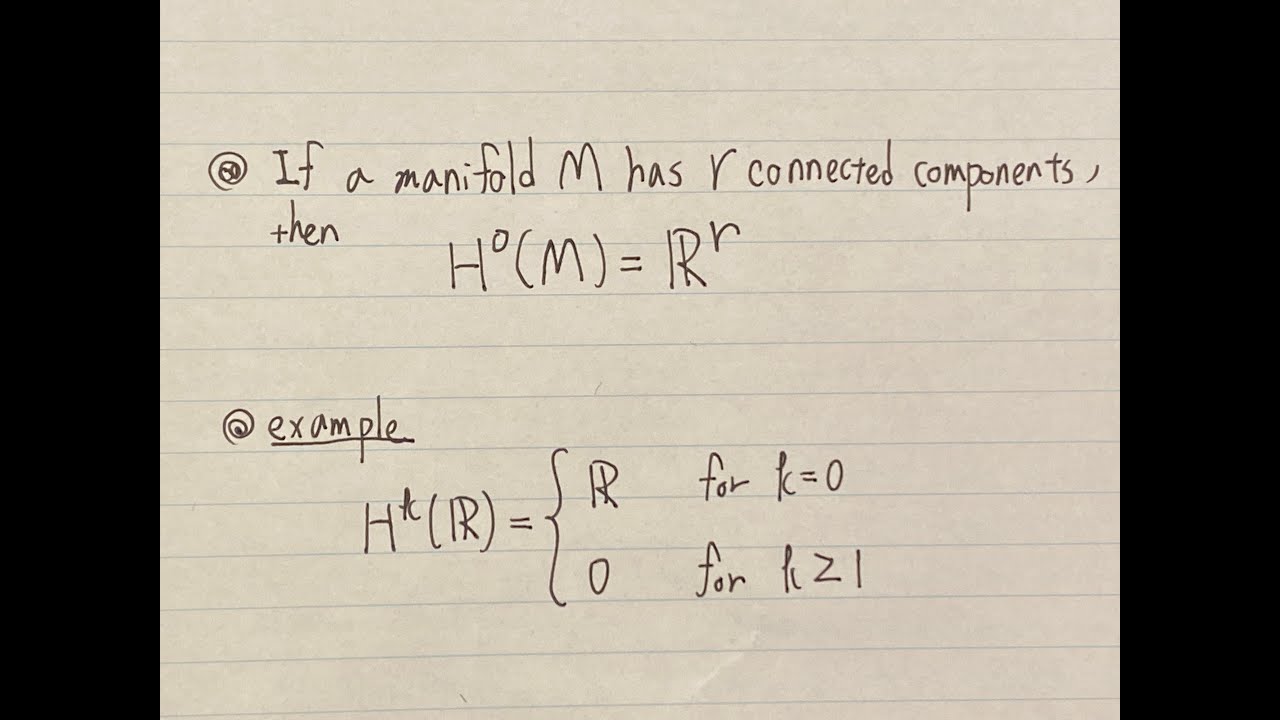 ◎ If a manifold M has r connected components,
then
H⁰(M) = ℝʳ
◎ example
Hᵏ(ℝ) = { ℝ for k=0
0 for k≥1